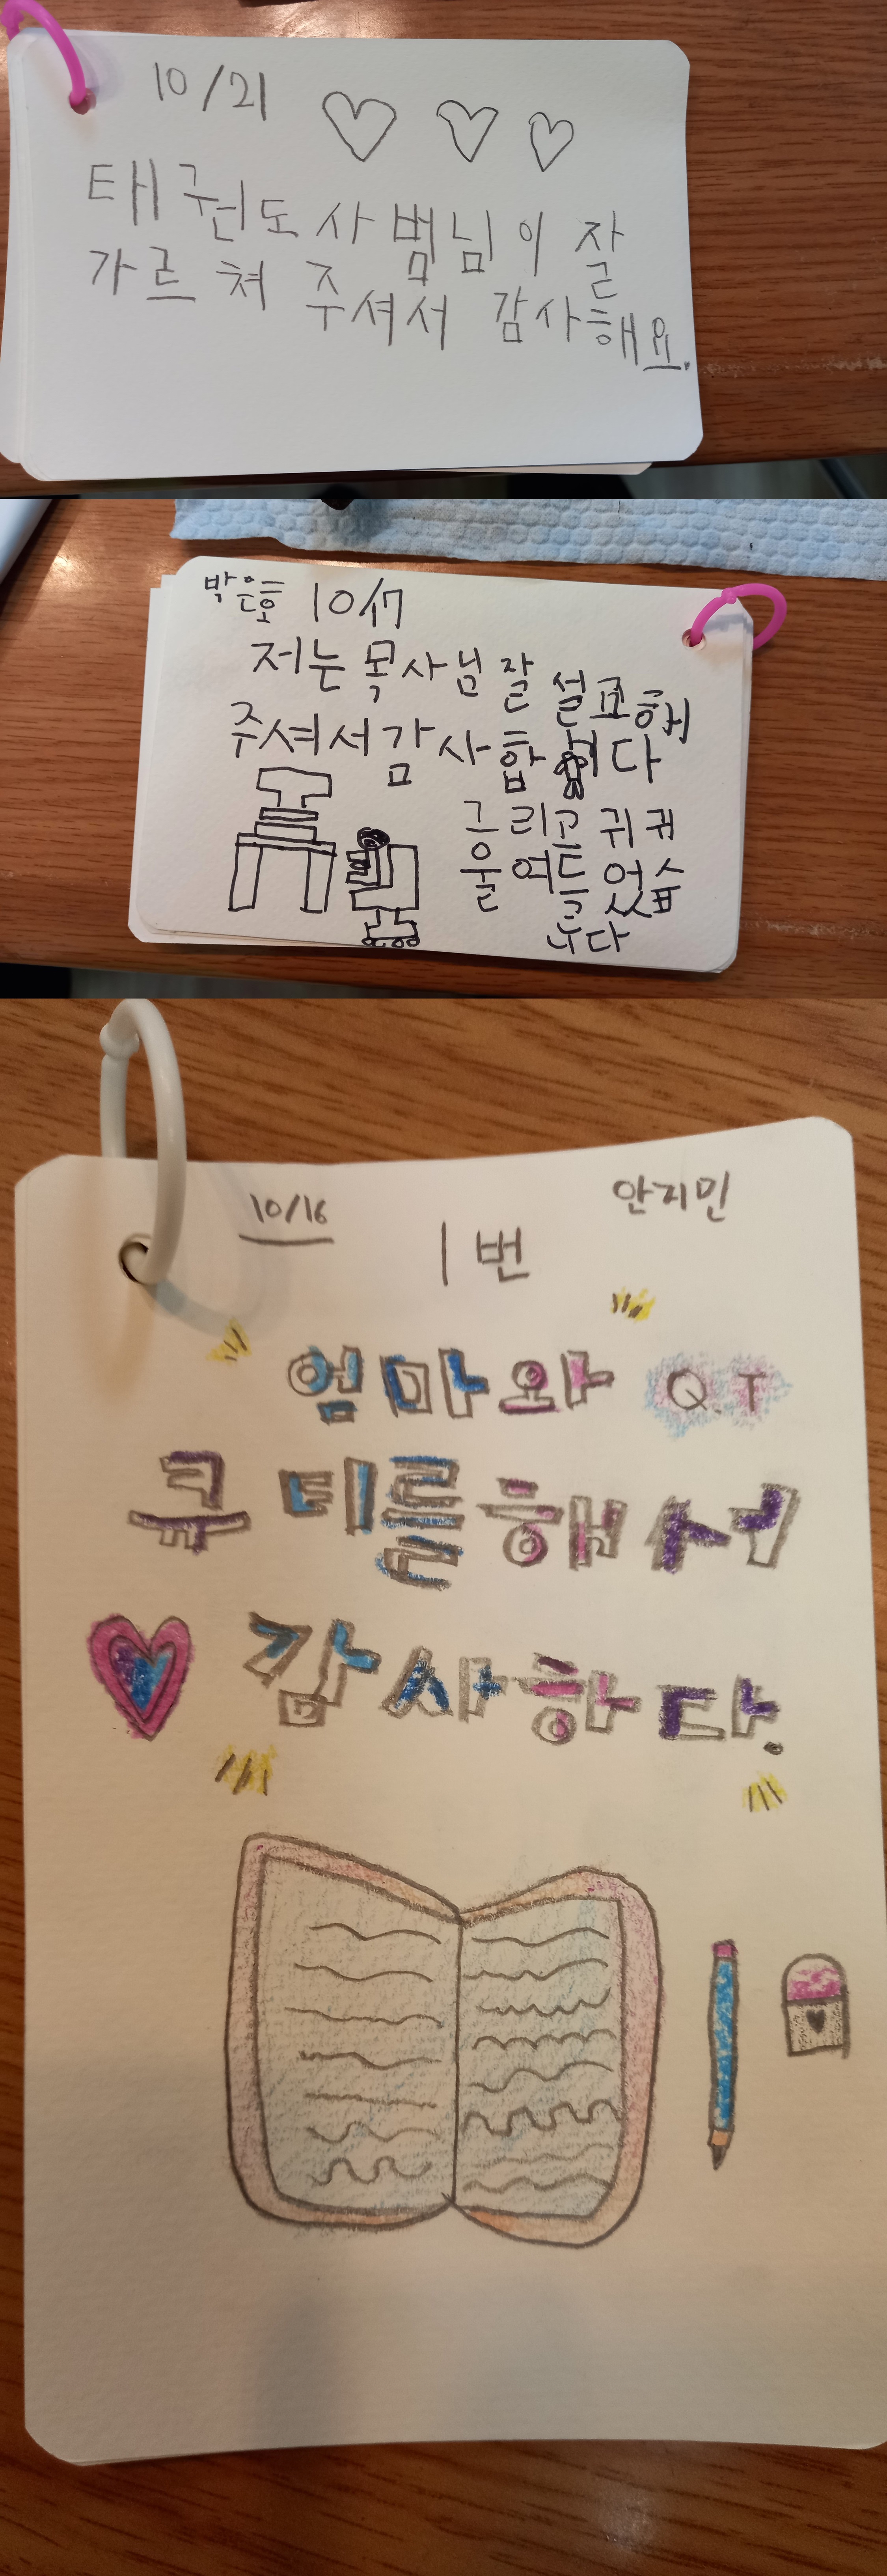 10/21
태권도 사범님이 잘
가르쳐 주셔서 감사해요.
박은호 10/17
저는 목사님 잘 설교해
주셔서 감사합니다
그리고 귀 귀
울여 들었습
니다
10/16 안지민
1번
엄마와 Q.T
큐티를해서
감사하다.